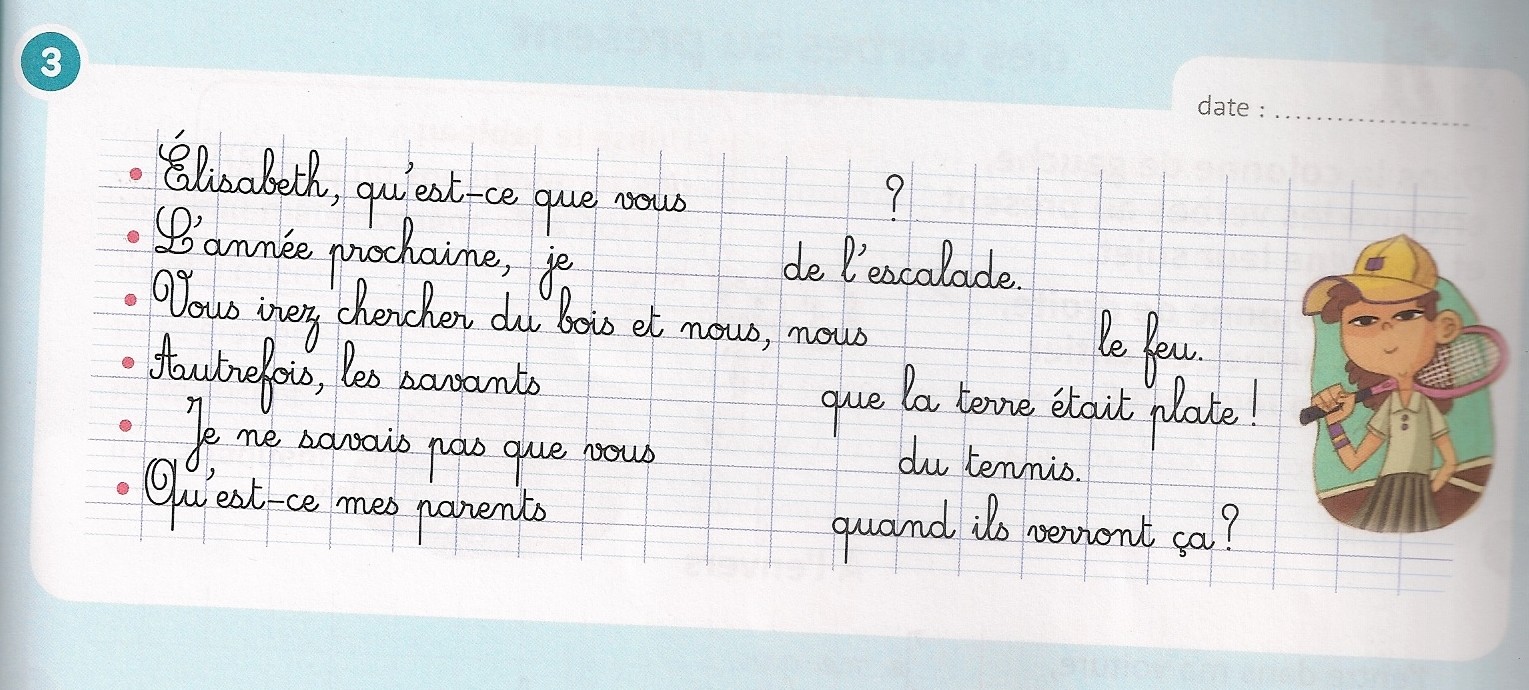 3
date : ......................
• Élisabeth, qu'est-ce que vous ?
• L'année prochaine, je de l'escalade.
• Vous irez chercher du bois et nous, nous le feu.
• Autrefois, les savants que la terre était plate !
• Je ne savais pas que vous du tennis.
• Qu'est-ce mes parents quand ils verront ça ?